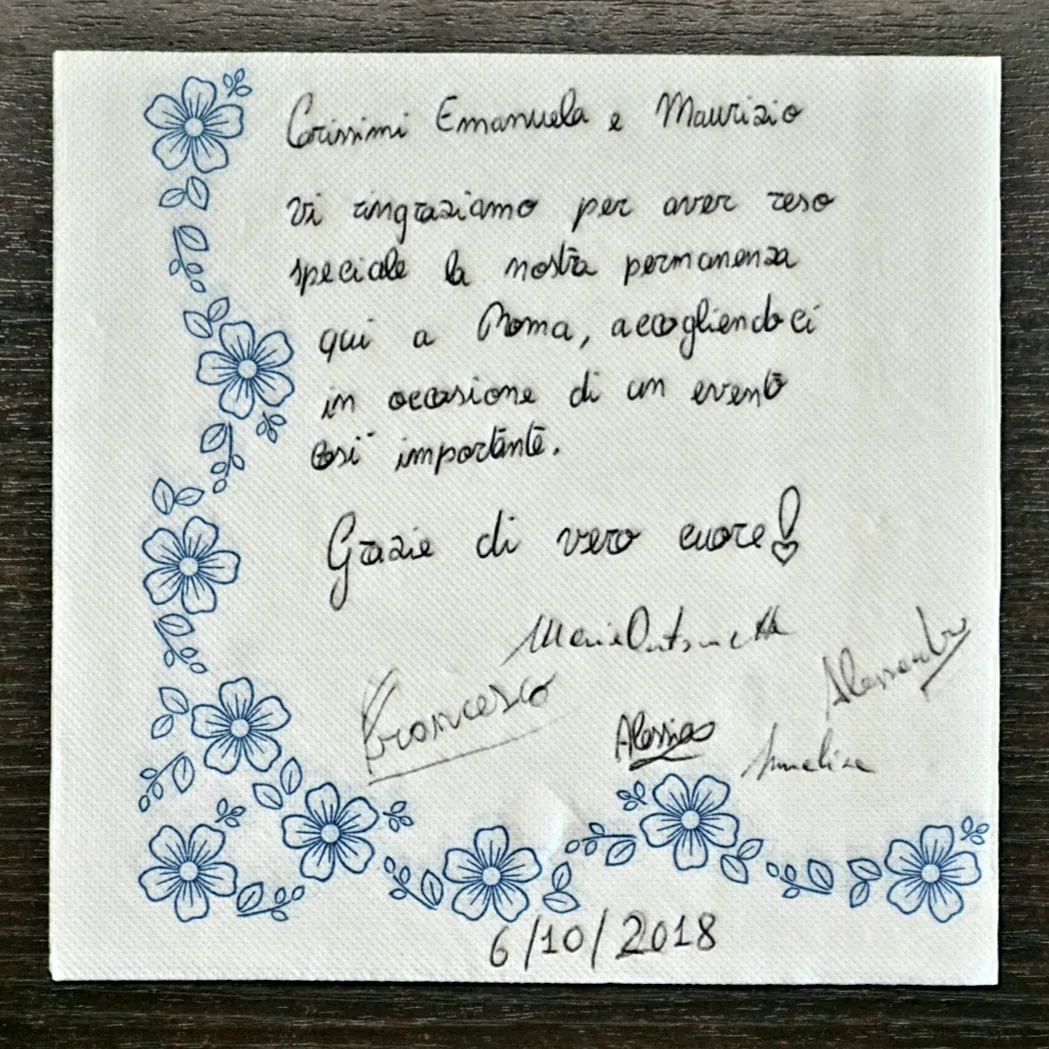 Carissimi Emanuela e Maurizio
vi ringraziamo per aver reso
speciale la nostra permanenza
qui a Roma, accogliendoci
in occasione di un evento
così importante.
Grazie di vero cuore!
Maria Antonietta
Alessandro
Francesco
Alessia
Annalisa
6/10/2018